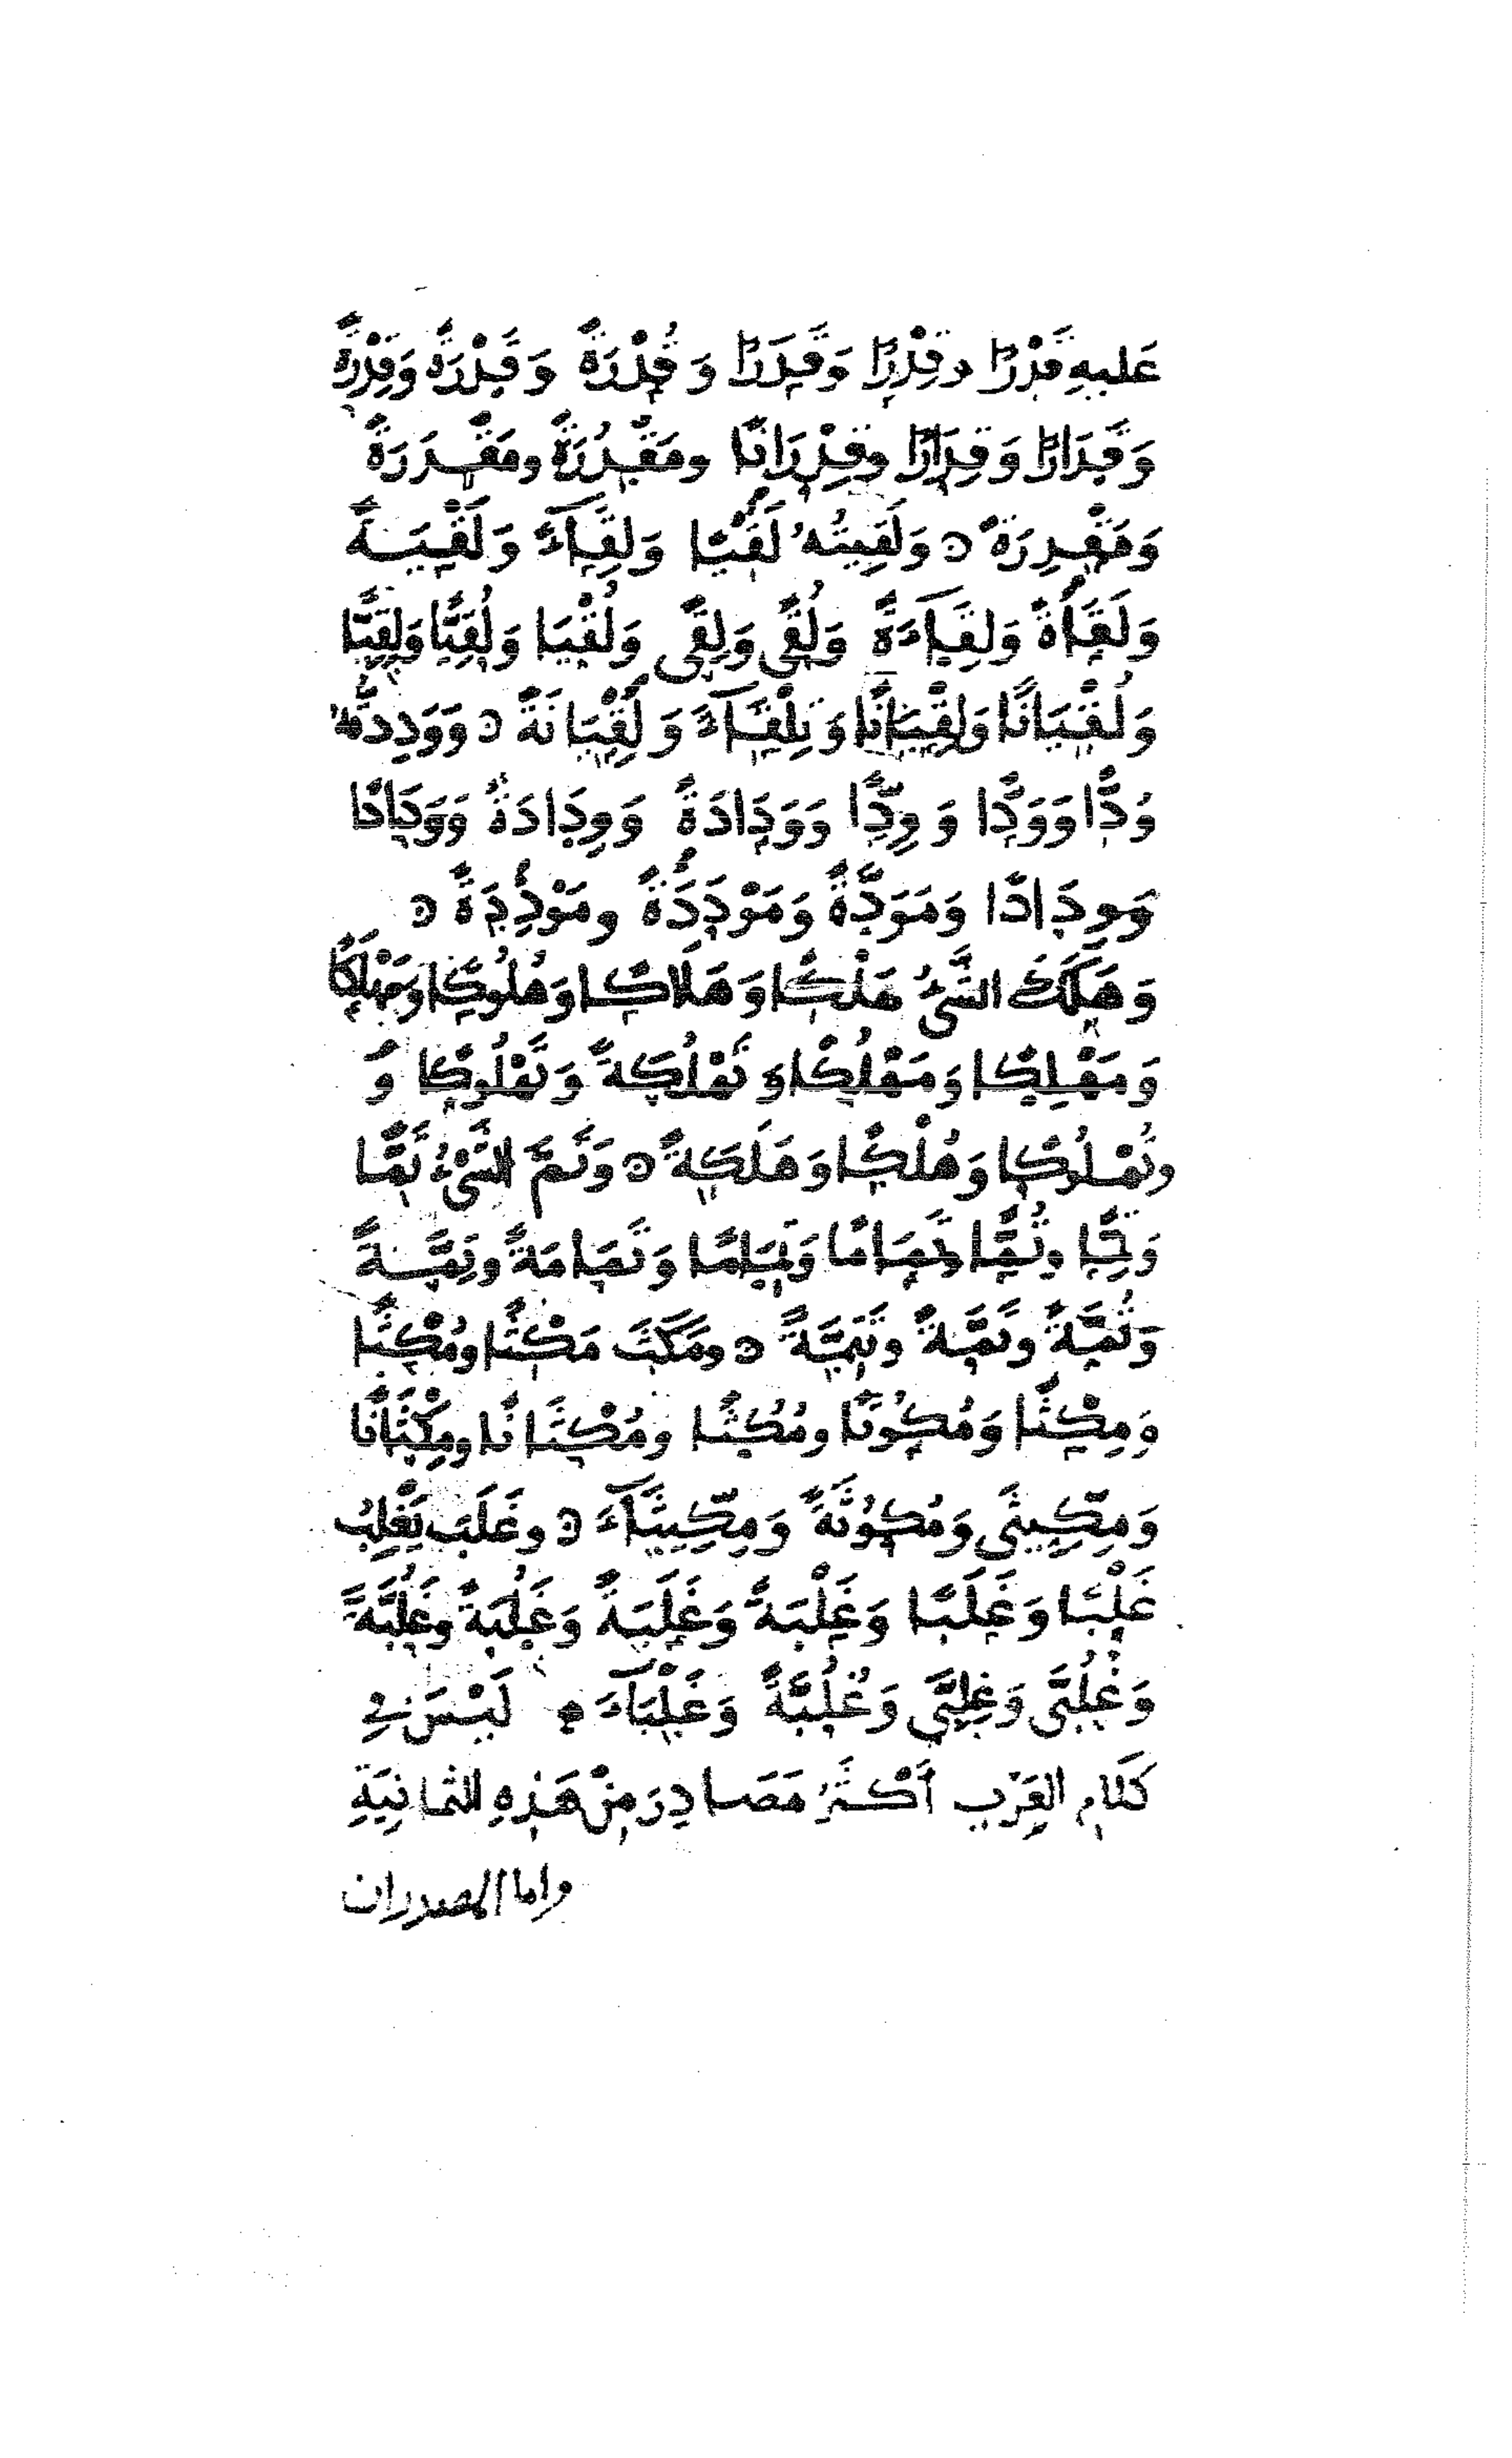 عَليهِ قَدْرًا وقِدْرًا وَقَدَرًا وَقُدْرَةً وَقَدْرَةً وَقِدْرَةً
وَقَدَارًا وَقِدَارًا وقِدْرَانًا ومَقْدُرَةً ومَقْدَرَةً
وَمَقْدِرَةً ۞ وَلَقِيتُهُ لَقْيًا وَلِقَآءً وَلَقْيَةً
وَلَقَاةً وَلِقَاءَةً وَلُقًى وَلِقًى وَلُقْيَا وَلُقِيًّا وَلِقِيًّا
وَلُقْيَانًا وَلِقْيَانًا وَتِلْقَآءً وَلُِقْيَانَةً ۞ وَوَدِدتُّهُ
وُدًّا وَوَدًّا وَوِدًّا وَوَدَادَةً وَوِدَادَةً وَوَدَادًا
وَوِدَادًا وَمَوَدَّةً وَمَوْدَدَةً ومَوْدِدَةً ۞
وَهَلَكَ الشَّىْءُ هَلْكًا وَهَلَاكًا وَهُلُوكًا وَمَهْلَكًا
وَمَهْلِكًا وَمَهْلُكًا وَتَهْلُكَةً وَتَهْلُوكًا وَ
وتُهْلُوكًا وَهُلْكًا وَهَلَكَةً ۞ وَتَمَّ الشَّىْءُ تَمًّا
وَتِمًّا وتُمًّا وتَمَامًا وَتِمَامًا وَتَمَامَةً وتِمَّةً
وَتُمَّةً وتَمَّةً وتَتِمَّةً ۞ ومَكَثَ مَكْثًا ومُكْثًا
وَمِكْثًا وَمُكُوثًا ومُكُثًا ومُكْثَانًا ومِكْثَانًا
وَمِكِّيثَى وَمُكُوثَةً وَمِكِّيثَآءَ ۞ وغَلَبَ يَغْلِبُ
غَلْبًا وَغَلَبًا وَغَلْبَةً وَغَلَبَةً وَغَلُبَةً وغَلُبَّةً
وَغُلُبَّى وَغِلِبَّى وَغُلُبَّةً وَغَلْبَآءَ ۞ لَيْسَ فِي
كَلَامِ العَرَبِ أَكْثَرُ مَصَادِرَ مِنْ هَذِهِ الثمانِيَةِ
واما المصدران